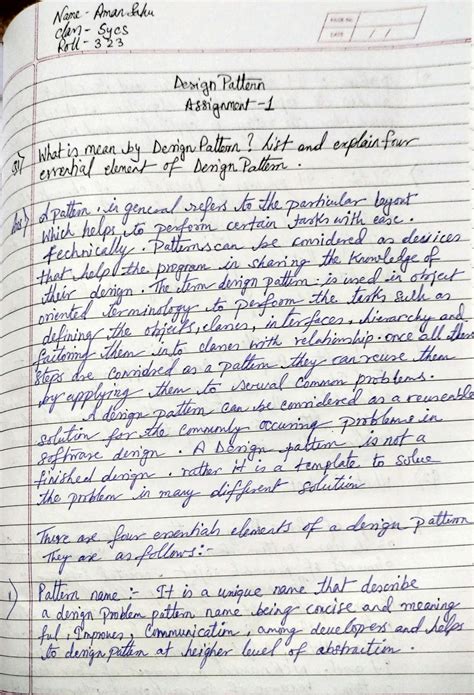 Name - Aman Sahu
Class - Sycs
Roll - 323
PAGE NO.
DATE / /
Design Pattern
Assignment - 1
Q1) What is mean by Design Pattern? List and explain four
essential element of Design Pattern.
Ans) A pattern, in general refers to the particular layout
which helps to perform certain tasks with ease.
Technically. Patterns can be considered as devices
that help the program in sharing the knowledge of
their design. The term design pattern is used in object
oriented terminology to perform the tasks such as
defining the objects, classes, interfaces, hierarchy and
factoring them into classes with relationship. once all these
steps are considred as a pattern they can reuse them
by applying them to serval common problems.
A design pattern can be considered as a reuseable
solution for the commonly occuring problems in
software design. A Design pattern is not a
finished design. rather it is a template to solve
the problem in many different solution
There are four essentials elements of a design pattern
They are as follows:-
1) Pattern name :- It is a unique name that describe
a design problem pattern name being concise and meaning
ful, Improves, Communication, among developers and helps
to design pattern at heigher level of abstraction.